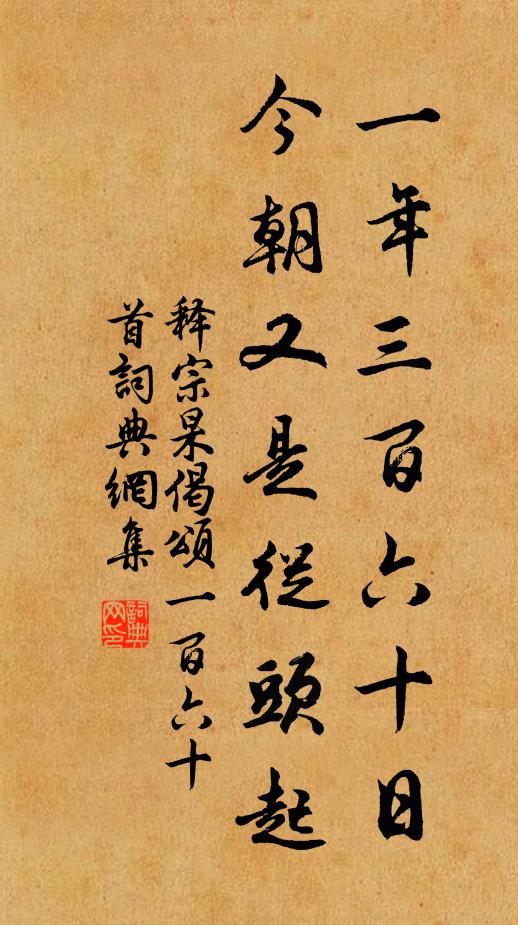 一年三百六十日
今朝又是從頭起
释宗杲偈頌一百六十
首詞典網集
詞典网印